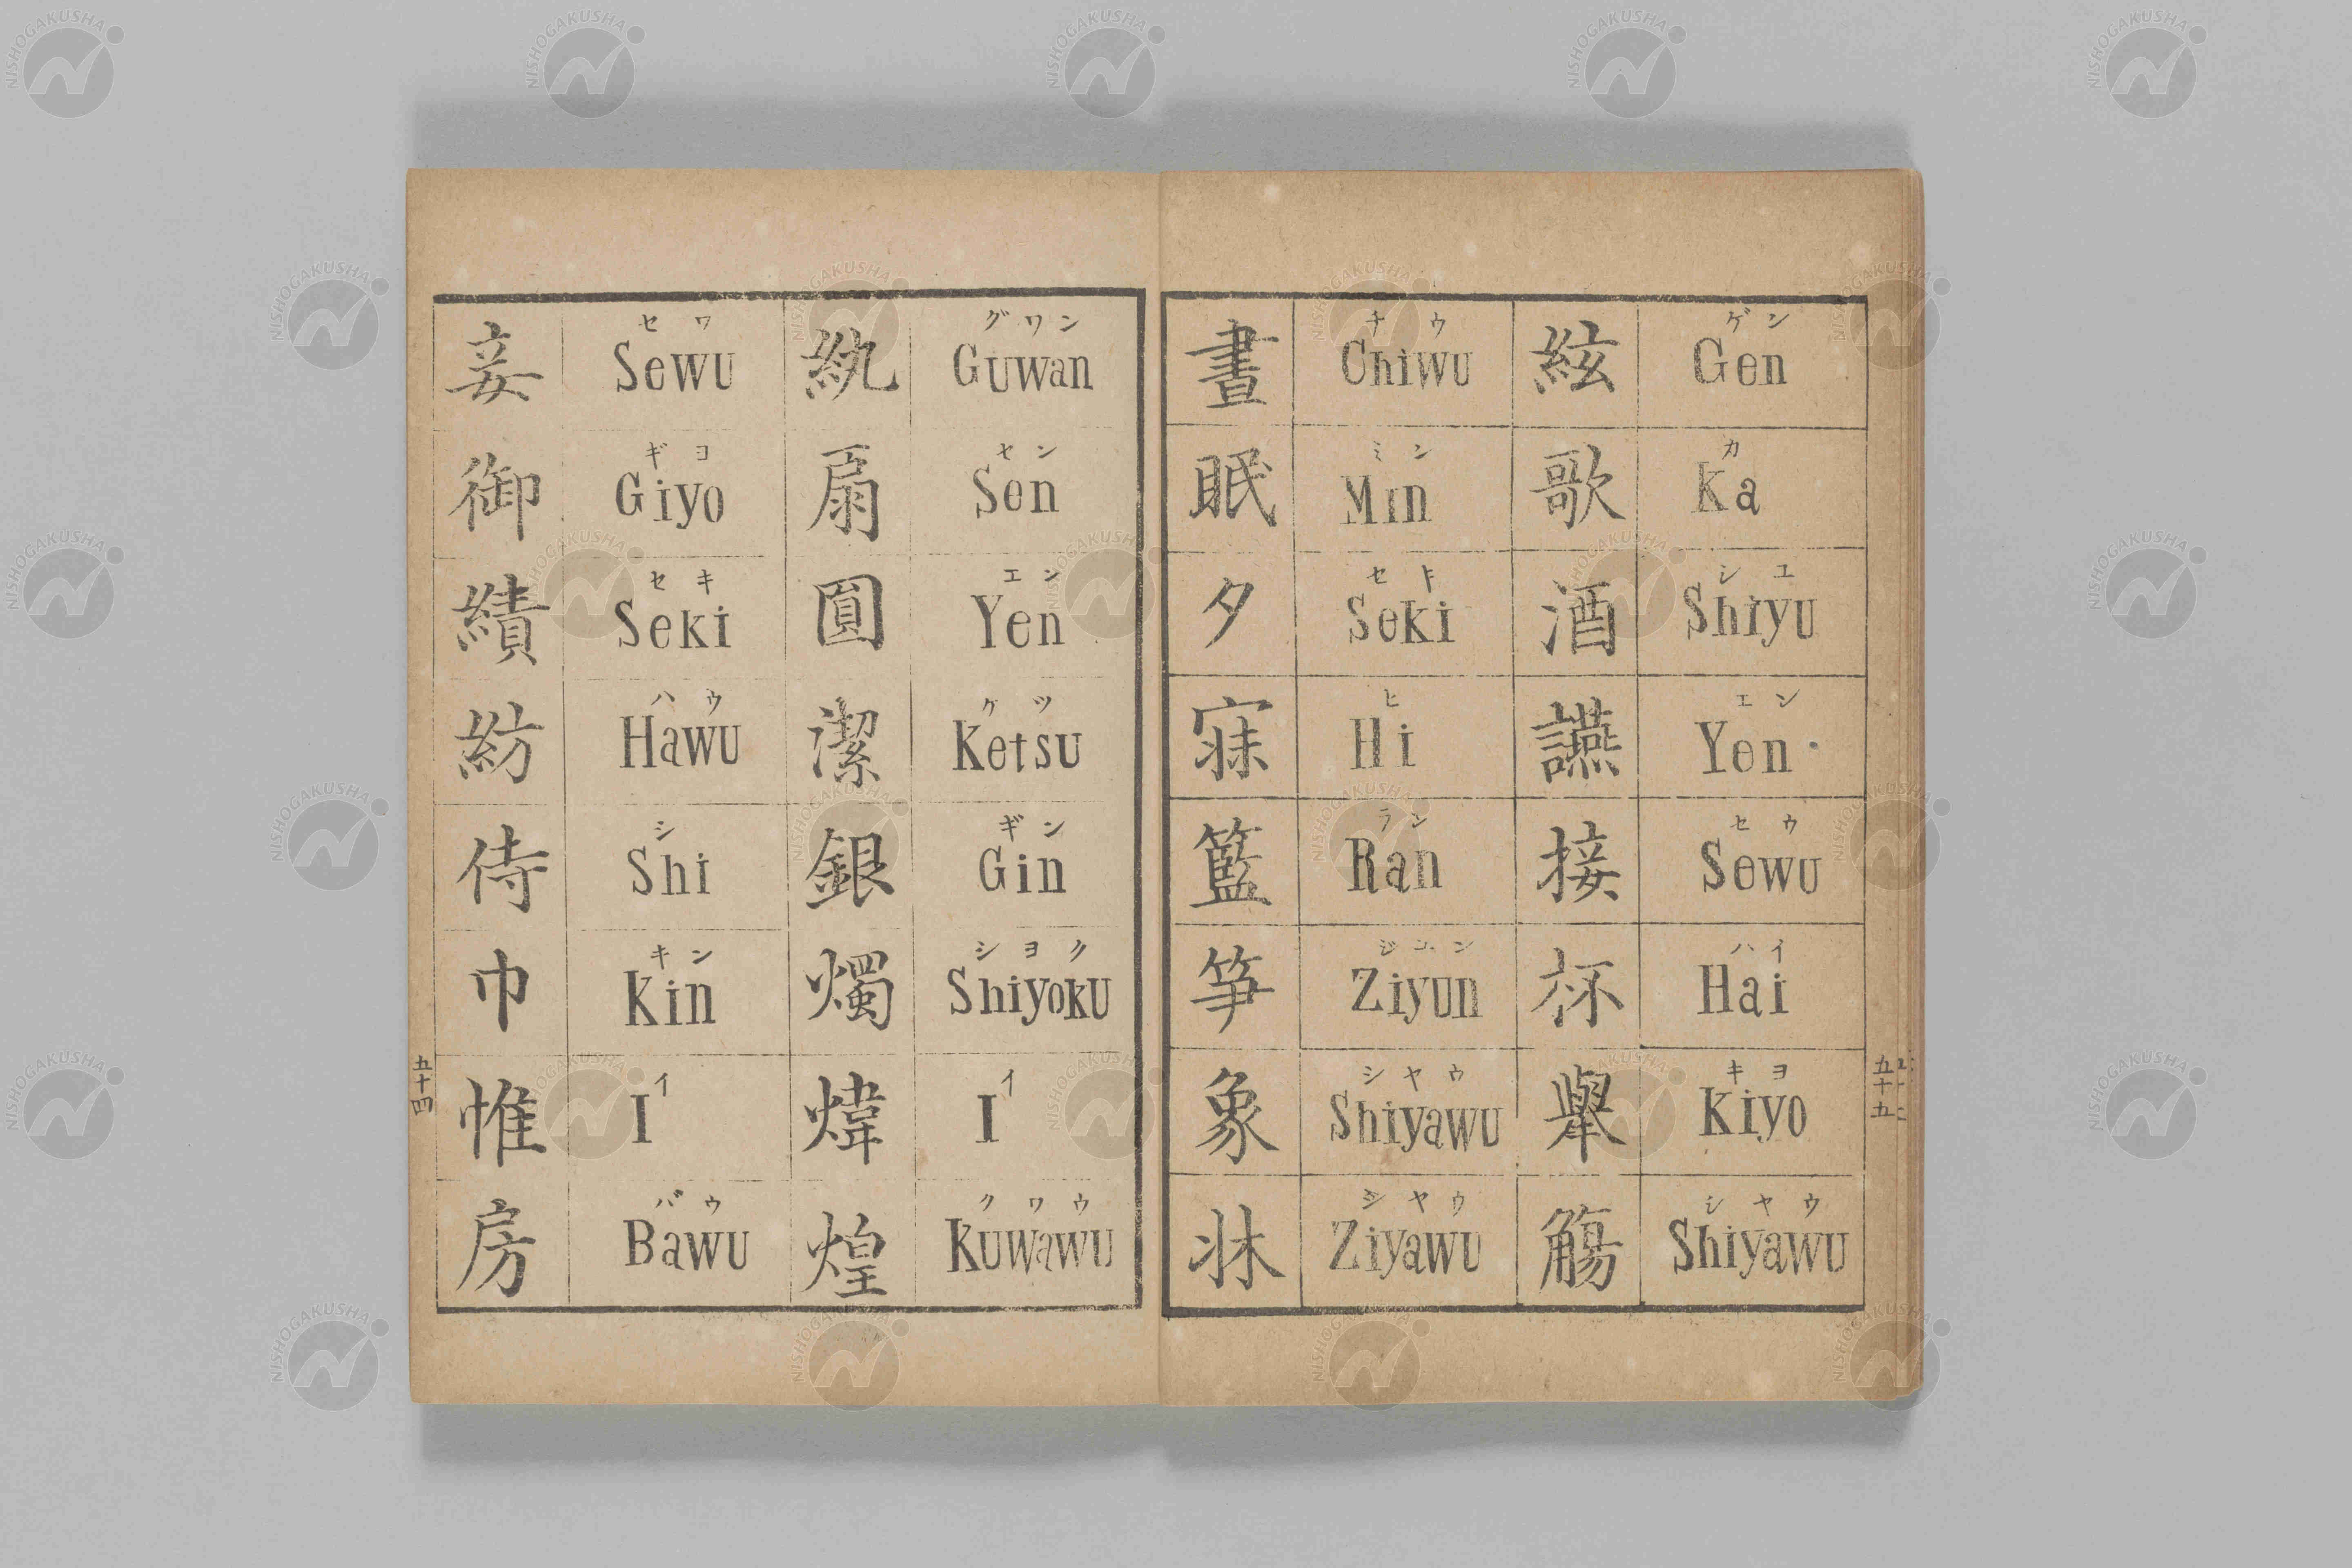 妾 セワ Sewu
御 ギヨ Giyo
績 セキ Seki
紡 ハウ Hawu
侍 シ Shi
巾 キン Kin
帷 イ I
房 バウ Bawu
紈 グワン Guwan
扇 セン Sen
圓 エン Yen
潔 ケツ Ketsu
銀 ギン Gin
燭 シヨク Shiyoku
煒 イ I
煌 クワウ Kuwawu
五十四
晝 チウ Chiwu
眠 ミン Min
夕 セキ Seki
寐 ヒ Hi
籃 ラン Ran
笋 ジユン Ziyun
象 シヤウ Shiyawu
牀 ジヤウ Ziyawu
絃 ゲン Gen
歌 カ Ka
酒 シユ Shiyu
讌 エン Yen
接 セウ Sewu
杯 ハイ Hai
擧 キヨ Kiyo
觴 シヤウ Shiyawu
五十五
NISHOGAKUSHA